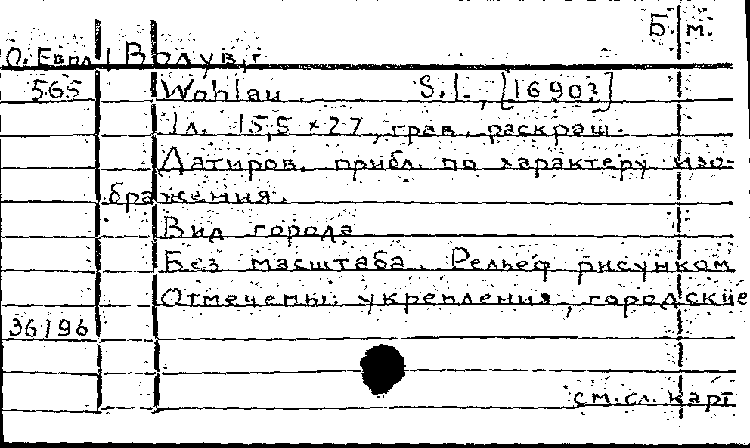 Б. м.
О. Евпл Волув, г.
565 Wohlau. S.l., [1690?]
1л. 15,5 × 27, грав. раскраш.
Датиров. прибл. по характеру изо-
бражения.
Вид города
Без масштаба. Рельеф рисунком
Отмечены: укрепления, городские
36196
см. сл. карт